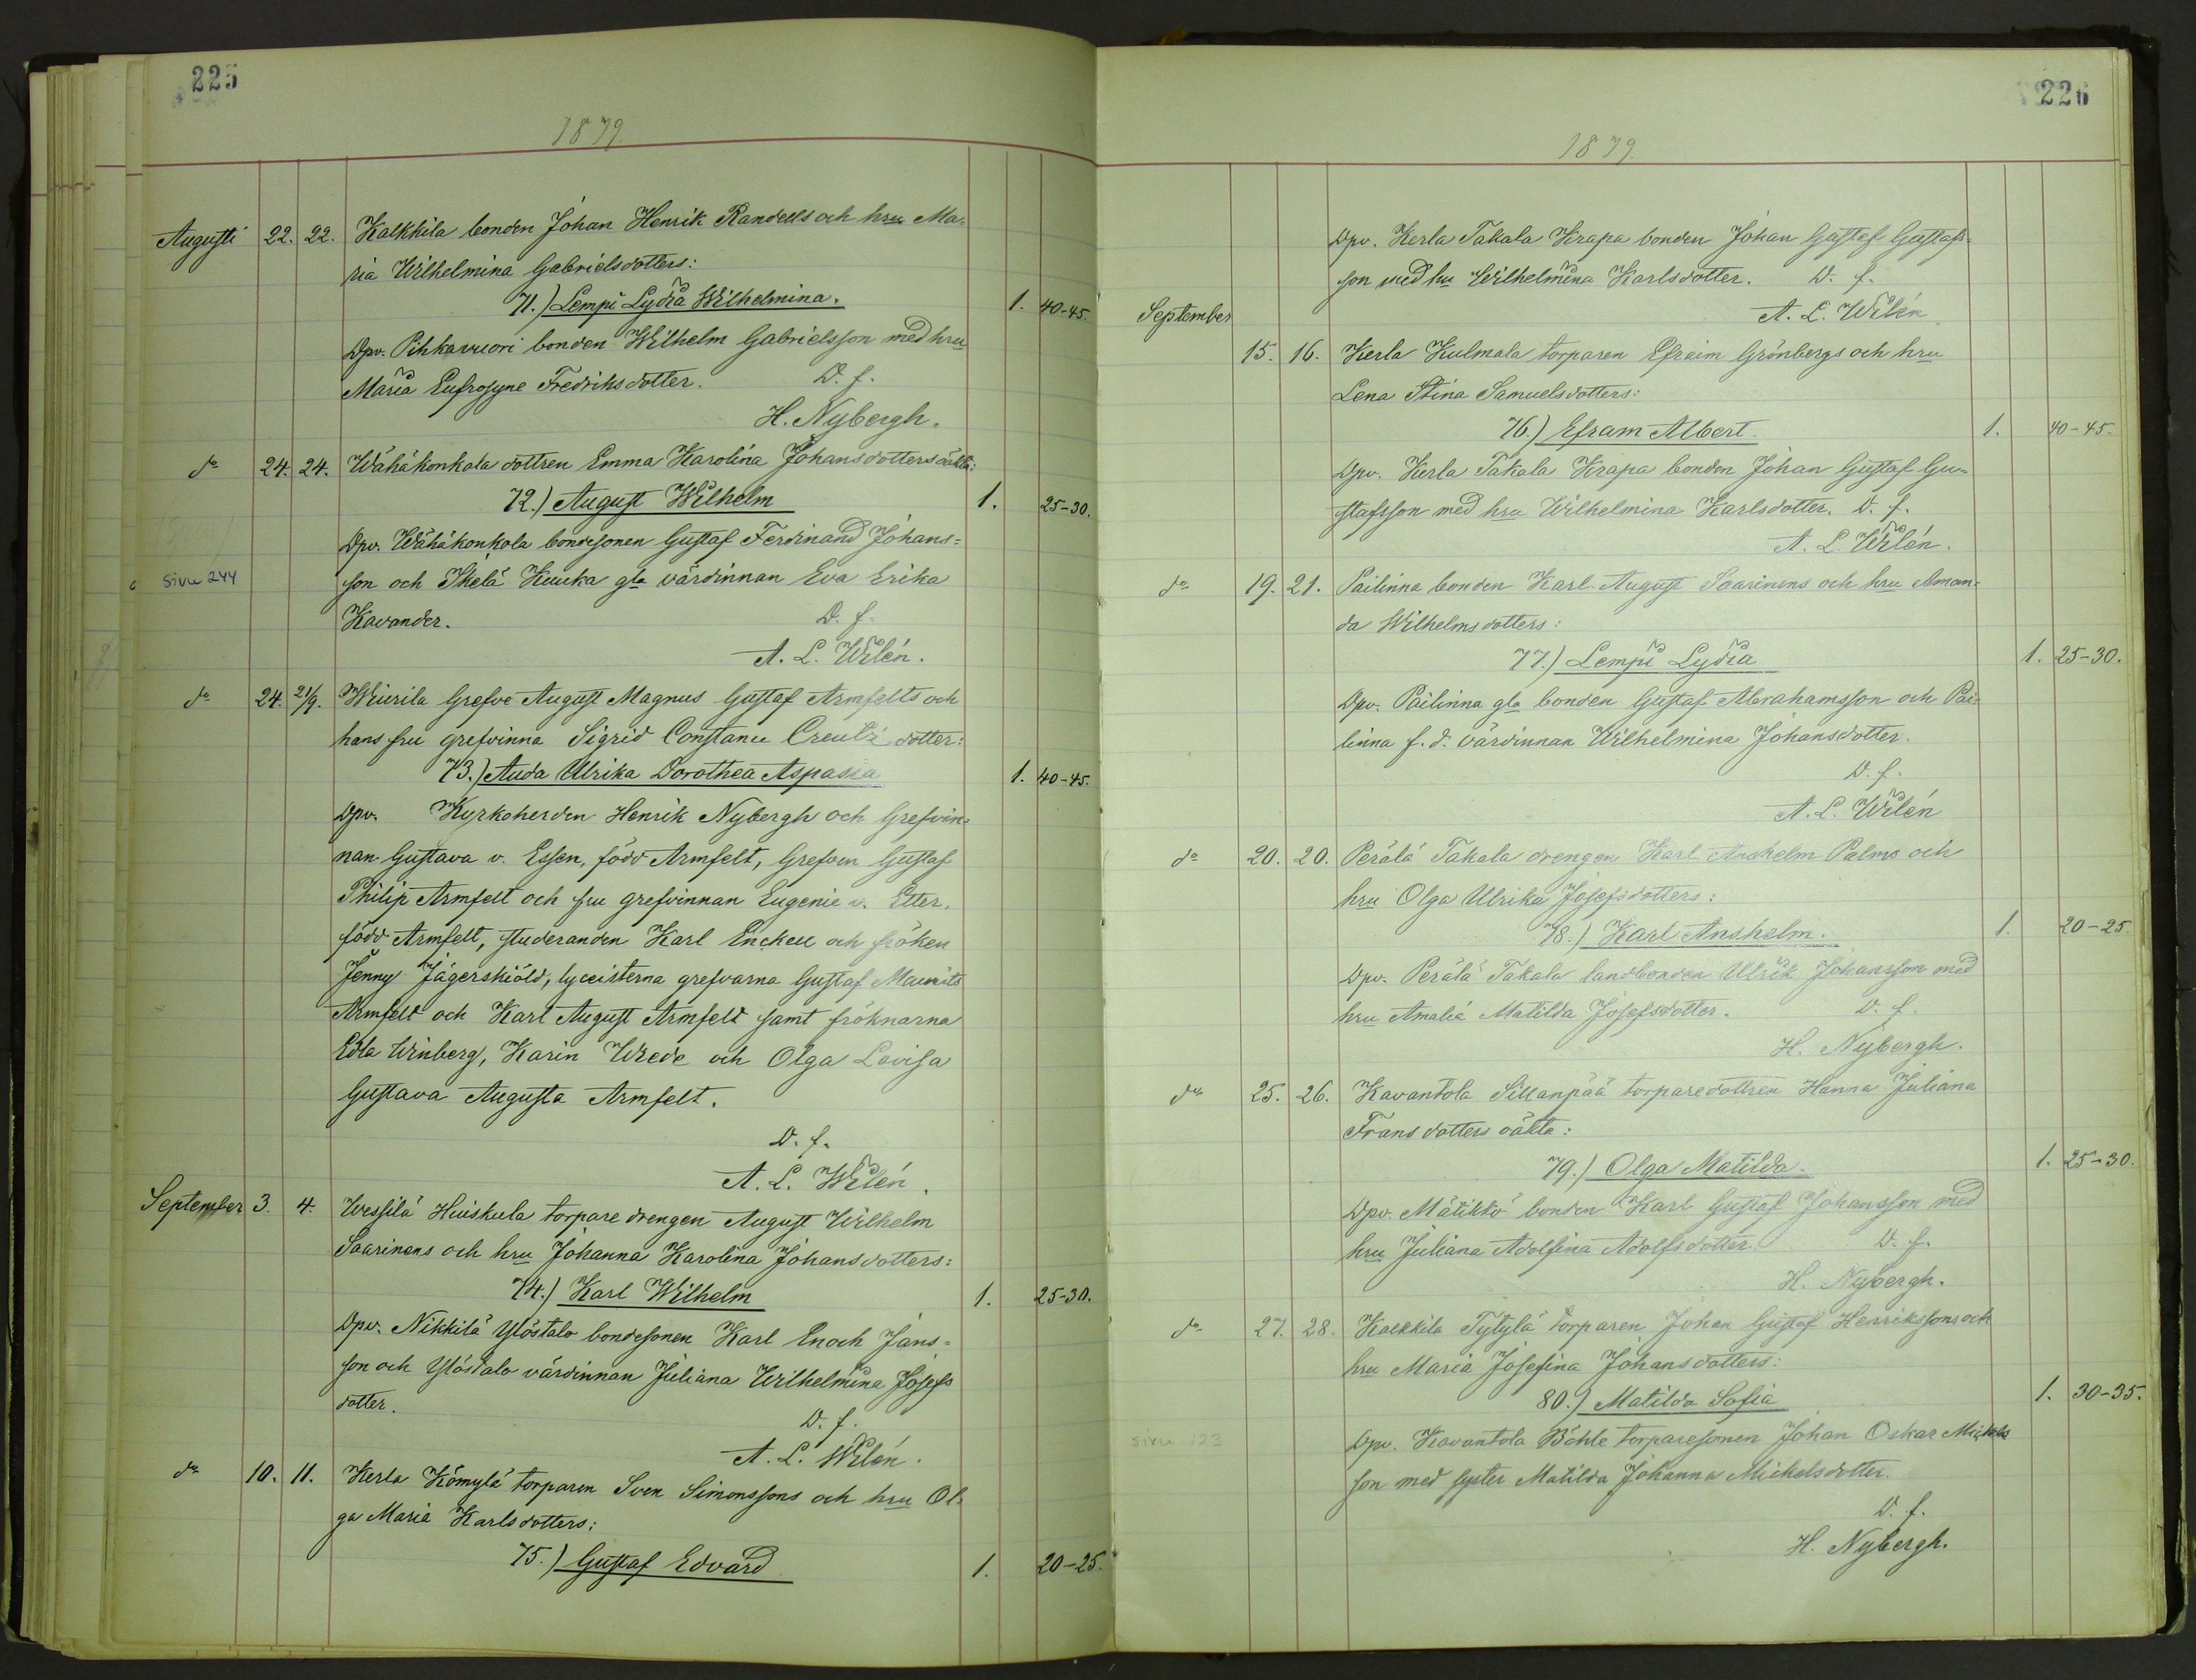 225
1879.
Augusti 22. 22. Kalkkila bonden Johan Henrik Randells och hru Ma-
ria Wilhelmina Gabrielsdotters:
71.) Lempi Lydia Wilhelmina. 1. 40-45.
Dpv. Pihkavuori bonden Wilhelm Gabrielsson med hru
Maria Eufrosyne Fredriksdotter. D. f.
H. Nybergh.
do 24. 24. Wähäkonkola dottren Emma Karolina Johansdotters oäkta:
72.) August Wilhelm 1. 25-30.
Dpv. Wähäkonkola bondesonen Gustaf Ferdinand Johans=
sivu 244
son och Ihelä Kuuka gla värdinnan Eva Erika
Kavander. D. f.
A. L. Wilén.
do 24. 21/9. Wiurila Grefve August Magnus Gustaf Armfelts och
hans fru grefvinna Sigrid Constance Creutz dotter:
73.) Auda Ulrika Dorothea Aspasia 1. 40-45.
Dpv. Kyrkoherden Henrik Nybergh och Grefvin=
nan Gustava v. Essen, född Armfelt, Grefven Gustaf
Philip Armfelt och fru grefvinnan Eugenie v. Etter,
född Armfelt, studeranden Karl Enckell och fröken
Jenny Jägerskiöld, lyceisterna grefvarna Gustaf Maurits
Armfelt och Karl August Armfelt samt fröknarna
Edla Winberg, Karin Wrede och Olga Lovisa
Gustava Augusta Armfelt.
D. f.
A. L. Wilén.
September 3. 4. Wessilä Huiskula torpare drengen August Wilhelm
Saarinens och hru Johanna Karolina Johansdotters:
74.) Karl Wilhelm 1. 25-30.
Dpv. Nikkilä Ylöstalo bondesonen Karl Enoch Jans=
son och Ylöstalo värdinnan Juliana Wilhelmina Josefs
dotter. D. f.
A. L. Wilén.
do 10. 11. Kerla Kömylä torparen Sven Simonssons och hru Ol-
ga Maria Karlsdotters:
75.) Gustaf Edvard 1. 20-25.
226
1879.
Dpv. Kerla Takala Kirapa bonden Johan Gustaf Gustafs-
son med hu Wilhelmina Karlsdotter. D. f.
September A. L. Wilén
15. 16. Kerla Kulmala torparen Efraim Grönbergs och hru
Lena Stina Samuelsdotters:
76.) Efram Albert. 1. 40-45.
Dpv. Kerla Takala Kirapa bonden Johan Gustaf Gu=
stafsson med hru Wilhelmina Karlsdotter. D. f.
A. L. Wilén.
do 19. 21. Pailinna bonden Karl August Saarinens och hru Aman-
da Wilhelmsdotters:
77.) Lempi Lydia 1. 25-30.
Dpv. Pailinna gla bonden Gustaf Abrahamsson och Pai=
linna f. d. värdinnan Wilhelmina Johansdotter.
D. f.
A. L. Wilén
do 20. 20. Perälä Takala drengen Karl Anshelm Palms och
hru Olga Ulrika Josefsdotters:
78.) Karl Anshelm. 1. 20-25.
Dpv. Perälä Takala landbonden Ulrik Johansson med
hru Amalia Matilda Josefsdotter. D. f.
H. Nybergh.
do 25. 26. Kavantola Sillanpää torparedottren Hanna Juliana
Fransdotters oäkta:
79.) Olga Matilda. 1. 25-30.
Dpv. Mätikkö bonden Karl Gustaf Johansson med
hru Juliana Adolfina Adolfsdotter. D. f.
H. Nybergh.
do 27. 28. Kalkkila Tytylä torparen Johan Gustaf Henrikssons och
hru Maria Josefina Johansdotters:
80.) Matilda Sofia 1. 30-35.
sivu 123
Dpv. Kavantola Böhle torparesonen Johan Oskar Mickels
son med syster Matilda Johanna Mickelsdotter.
D. f.
H. Nybergh.